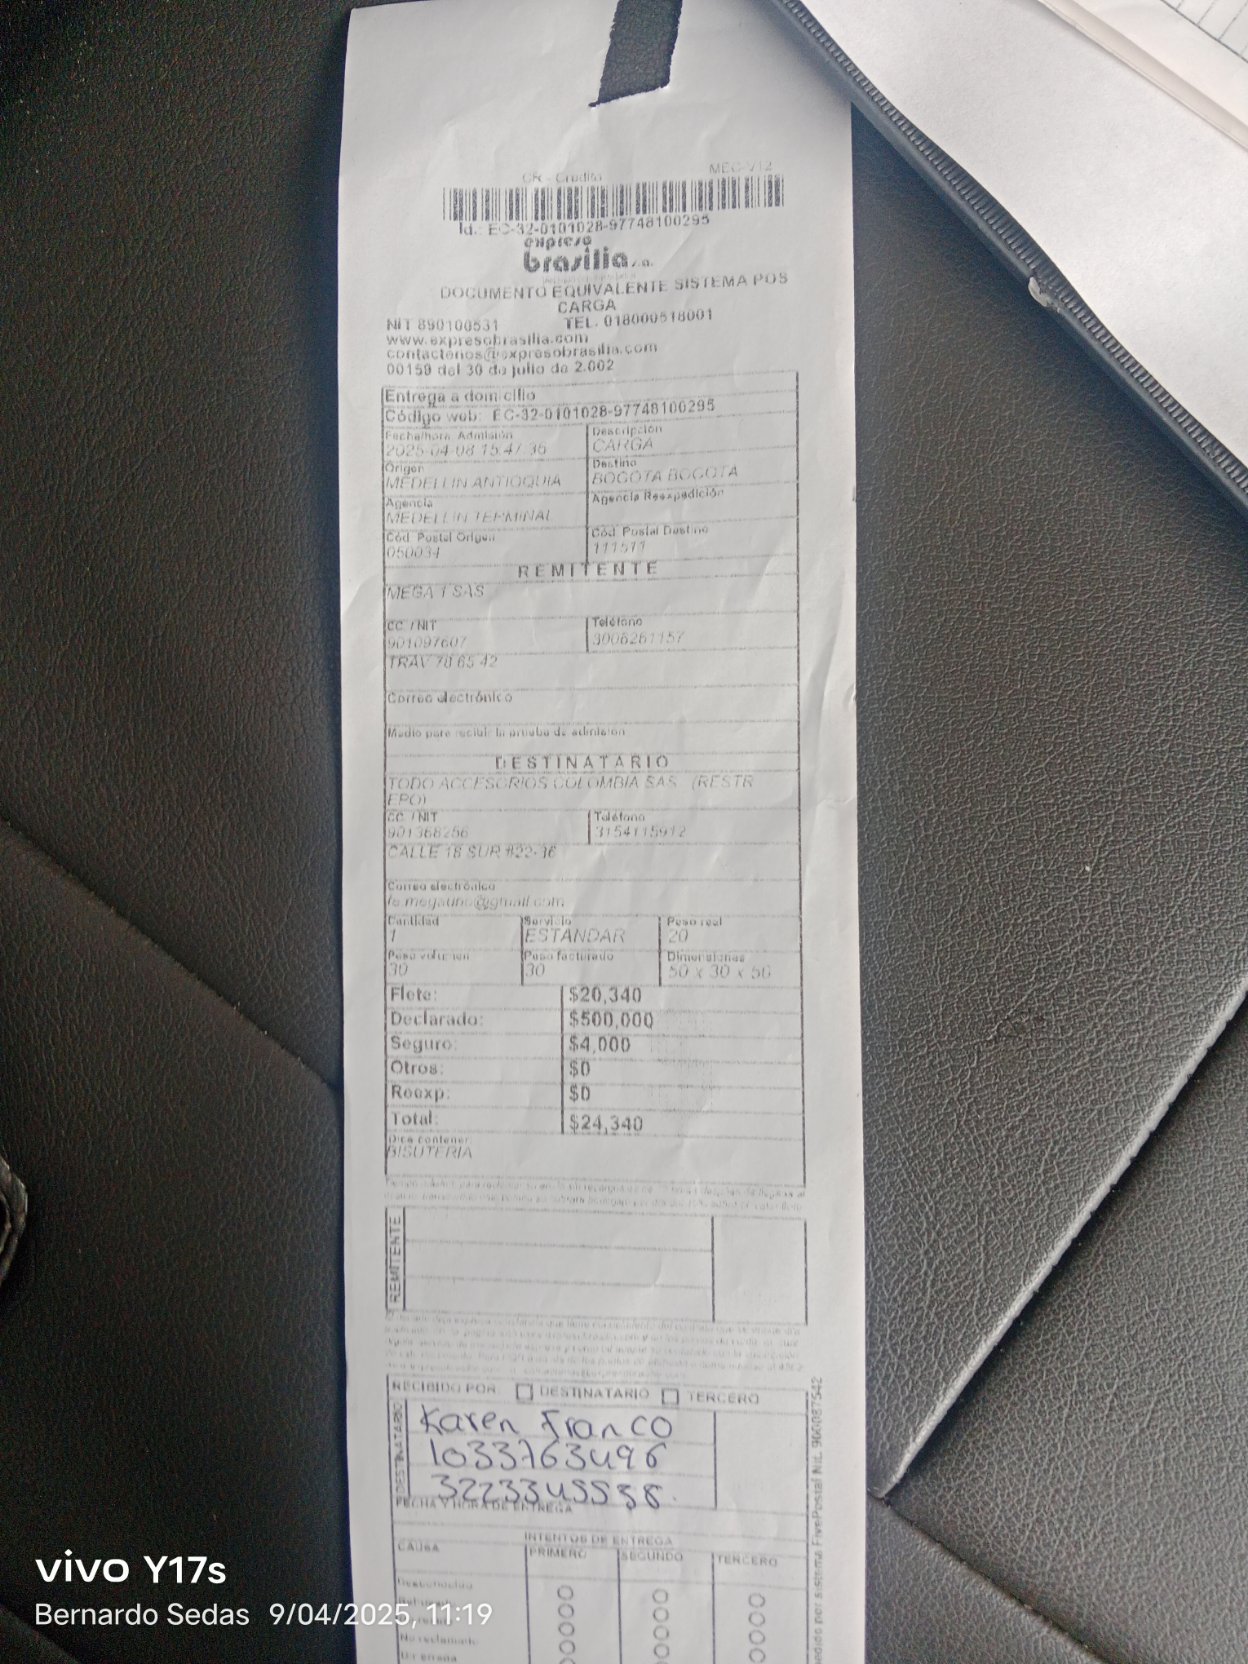 CR - Credito MEC-V12
Id.: EC-32-0101028-97748100295
expreso
brasilia s.a.
DOCUMENTO EQUIVALENTE SISTEMA POS
CARGA
NIT 890100531 TEL. 018000518001
www.expresobrasilia.com
contactenos@expresobrasilia.com
00159 del 30 de julio de 2.002
Entrega a domicilio
Código web: EC-32-0101028-97748100295
Fecha/hora Admisión Descripción
2025-04-08 15:47:36 CARGA
Origen Destino
MEDELLIN ANTIOQUIA BOGOTA BOGOTA
Agencia Agencia Reexpedición
MEDELLIN TERMINAL
Cód. Postal Origen Cód. Postal Destino
050034 111511
REMITENTE
MEGA 1 SAS
CC / NIT Teléfono
901097607 3006261157
TRAV 78 65 42
Correo electrónico
Medio para recibir la prueba de admisión
DESTINATARIO
TODO ACCESORIOS COLOMBIA SAS (RESTR
EPO)
CC / NIT Teléfono
901368256 3154115912
CALLE 18 SUR #22-36
Correo electrónico
fe.megauno@gmail.com
Cantidad Servicio Peso real
1 ESTANDAR 20
Peso volumen Peso facturado Dimensiones
30 30 50 x 30 x 50
Flete: $20,340
Declarado: $500,000
Seguro: $4,000
Otros: $0
Reexp: $0
Total: $24,340
Dice contener
BISUTERIA
REMITENTE
RECIBIDO POR: DESTINATARIO TERCERO
DESTINATARIO
Karen Franco
1033763496
3223345538.
FECHA Y HORA DE ENTREGA
INTENTOS DE ENTREGA
CAUSA PRIMERO SEGUNDO TERCERO
Desconocido
No reclamado
Dir errada
sistema FivePostal Nit. 900087542
vivo Y17s
Bernardo Sedas 9/04/2025, 11:19